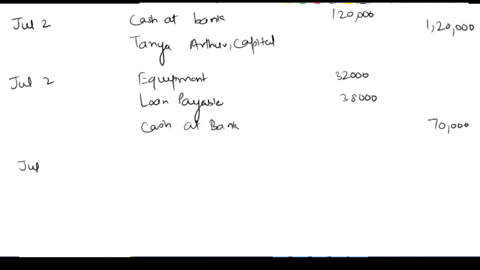 Jul 2 Cash at bank 120,000
Tanya Arthur, Capital 1,20,000
Jul 2 Equipment 32000
Loan Payable 38000
Cash at Bank 70,000
Jul